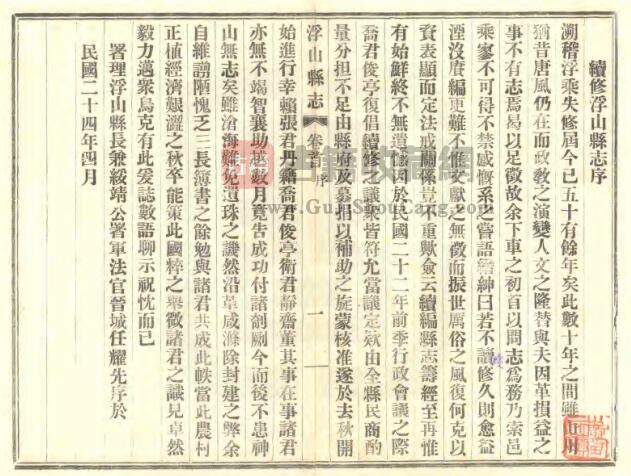 續修浮山縣志序
溯稽浮乘失修屆今已五十有餘年矣此數十年之間雖山川
猶昔唐風仍在而政敎之演變人文之隆替與夫因革損益之
事不有志焉曷以足徵故余下車之初首以問志爲務乃索邑
乘寥不可得不禁感慨系之嘗語縉紳曰若不續修久則愈益
湮沒賡編更難不惟文獻之無徵而振世厲俗之風復何克以
資表顯而定法戒關係豈不重歟僉云續編縣志籌經至再惟
有始鮮終不無遺憾因於民國二十二年前季行政會議之際
喬君俊亭復倡續修之議衆皆符允當議定欵由全縣民商酌
量分担不足由縣府及募捐以補助之旋蒙核准遂於去秋開
浮山縣志 卷首 序 一
始進行幸賴張君丹鷄喬君俊亭衛君靜齋董其事在事諸君
亦無不竭智襄助越數月竟吿成功付諸剞劂今而後不患神
山無志矣雖滄海難免遺珠之譏然沿革咸滌除封建之弊余
自維譾陋愧乏三長簿書之餘勉與諸君共成此帙當此農村
正値經濟艱澀之秋卒能策此國粹之舉徵諸君之識見卓然
毅力邁衆烏克有此爰誌數語聊示祝忱而已
署理浮山縣長兼綏靖公署軍法官晉城任耀先序於
民國二十四年四月
古籍收藏网
www.GujiShouCang.com